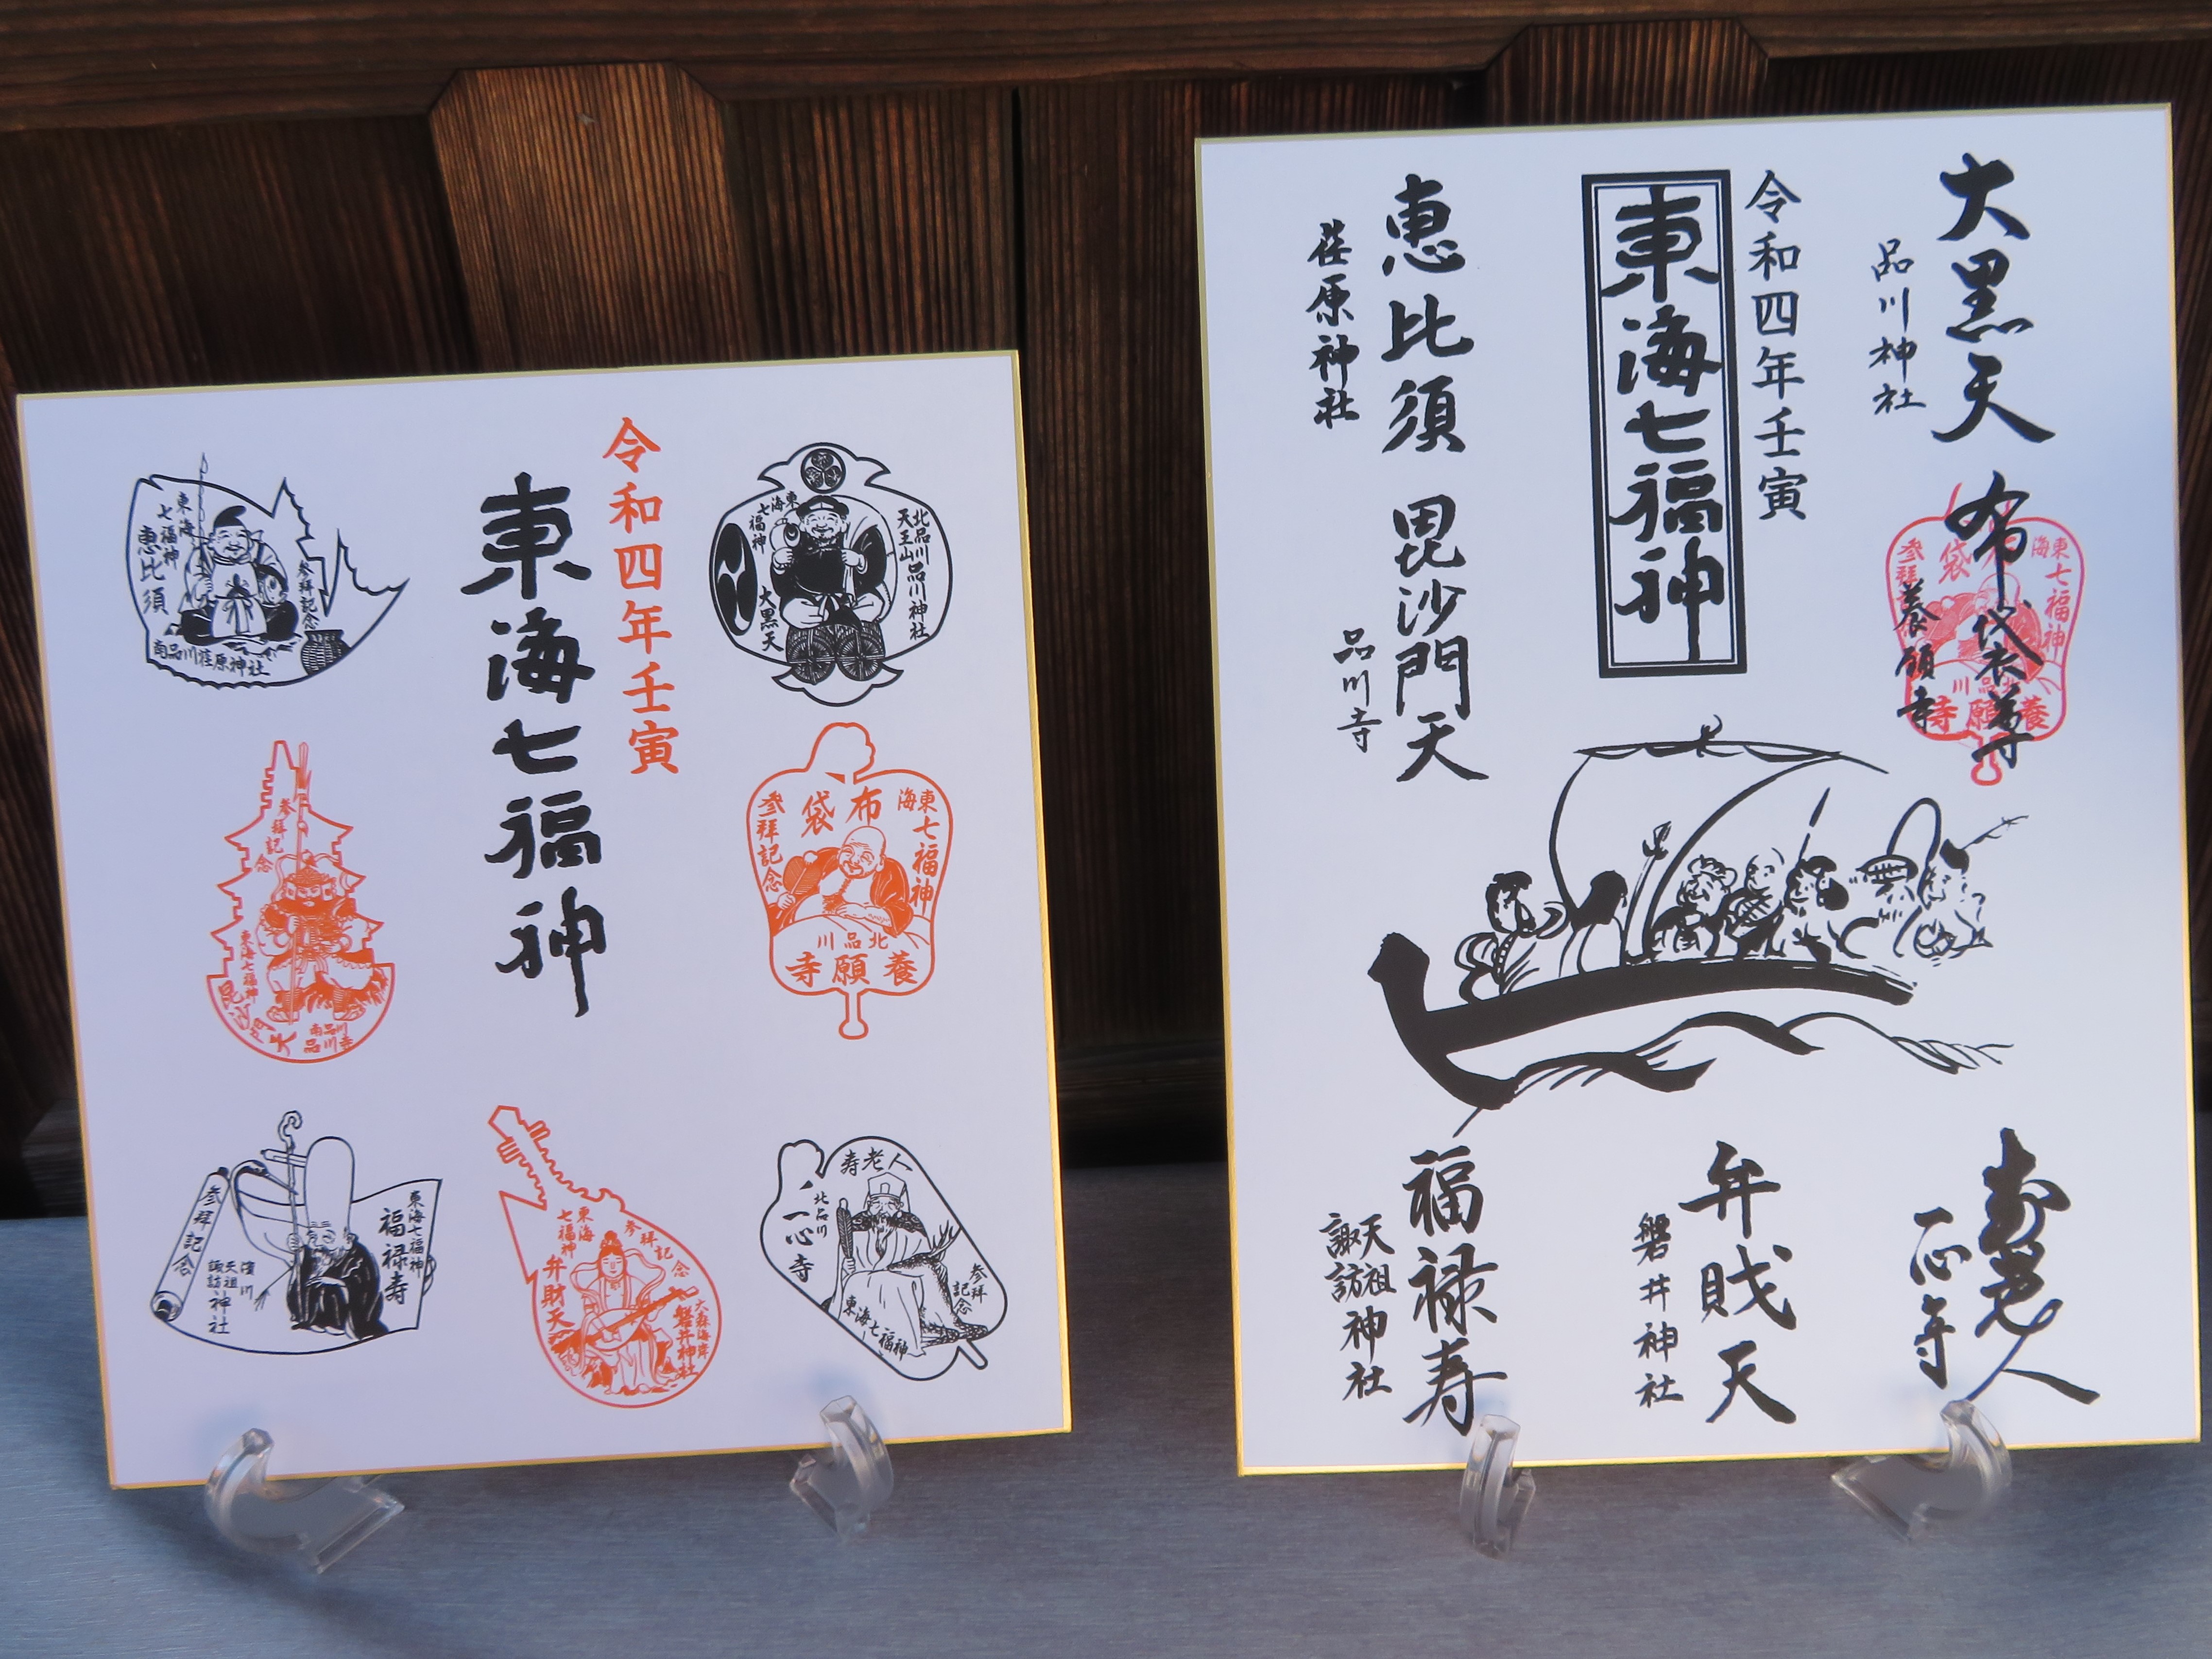 令和四年壬寅
東海七福神
東海
七福神
大黒天
北品川
天王山品川神社
東海
七福神
布袋
参拝記念
北品川
養願寺
寿老人
北品川
一心寺
参拝
記念
東海七福神
東海
七福神
恵比須
参拝記念
南品川荏原神社
参拝記念
東海七福神
毘沙門天
南品川
品川寺
東海七福神
福禄寿
参拝記念
濱川
天祖
諏訪神社
東海
七福神
弁財天
参拝記念
大森海岸
磐井神社
大黒天
品川神社
布袋尊
養願寺
東海
七福神
布袋
参拝
北品川
養願寺
令和四年壬寅
東海七福神
恵比須
荏原神社
毘沙門天
品川寺
寿老人
一心寺
弁財天
磐井神社
福禄寿
天祖
諏訪神社